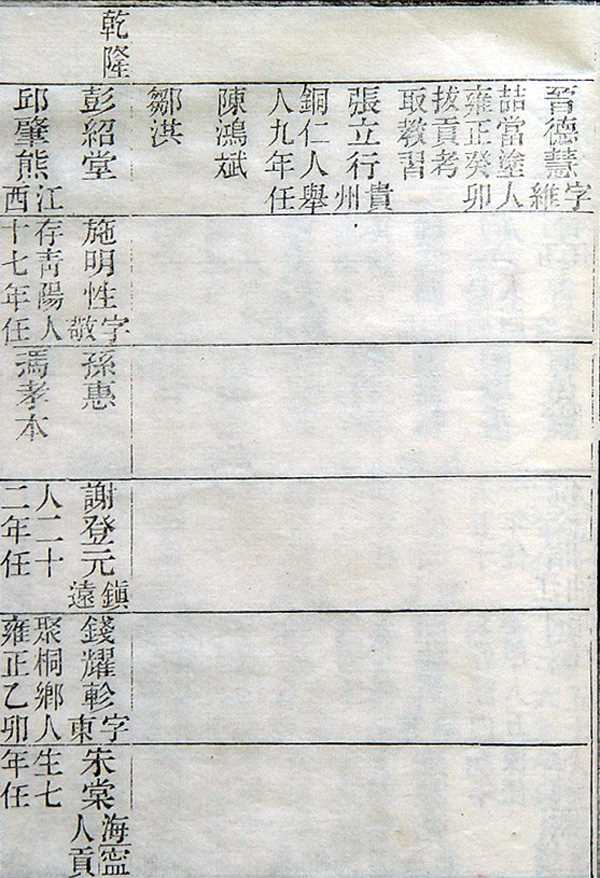 乾隆
德慧字維
喆當塗人
雍正癸卯
拔貢考
取教習
張立行貴州
銅仁人舉
人九年任
陳鴻斌
鄒淇
彭紹堂
邱肇熊江西
施明性字敬
存青陽人
十七年任
孫惠
馮孝本
謝登元鎮遠
人二十
二年任
錢耀軫字東
聚桐鄉人
雍正乙卯
宋棠海寧人貢
生七
年任